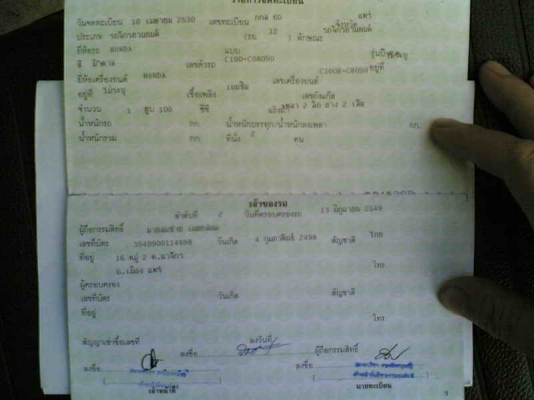 รายการจดทะเบียน
วันจดทะเบียน 10 เมษายน 2530 เลขทะเบียน กกล 60 แพร่
ประเภท รถจักรยานยนต์ (รย. 12 ) ลักษณะ รถจักรยานยนต์
ยี่ห้อรถ HONDA แบบ รุ่นปี
สี เลขตัวรถ C100-C08050 อยู่ที่
ยี่ห้อเครื่องยนต์ HONDA เลขเครื่องยนต์ C100E-C08050
อยู่ที่ ไม่ระบุ เชื้อเพลิง เบนซิน เลขถังแก๊ส
จำนวน 1 สูบ 100 ซีซี แรงม้า เพลา 2 ล้อ ยาง 2 เส้น
น้ำหนักรถ กก. น้ำหนักบรรทุก/น้ำหนักลงเพลา กก.
น้ำหนักรวม กก. ที่นั่ง 2 คน
เจ้าของรถ
ลำดับที่ 2 วันที่ครอบครองรถ 13 มิถุนายน 2549
ผู้ถือกรรมสิทธิ์ นายสมชาย
เลขที่บัตร วันเกิด 4 กุมภาพันธ์ 2498 สัญชาติ ไทย
ที่อยู่ 16 หมู่ 2 ต.นาจักร โทร.
อ.เมือง แพร่
ผู้ครอบครอง
เลขที่บัตร วันเกิด สัญชาติ
ที่อยู่ โทร.
สัญญาเช่าซื้อเลขที่ ลงวันที่ ผู้ถือกรรมสิทธิ์
ลงชื่อ ลงชื่อ ลงชื่อ
เจ้าหน้าที่ นายทะเบียน